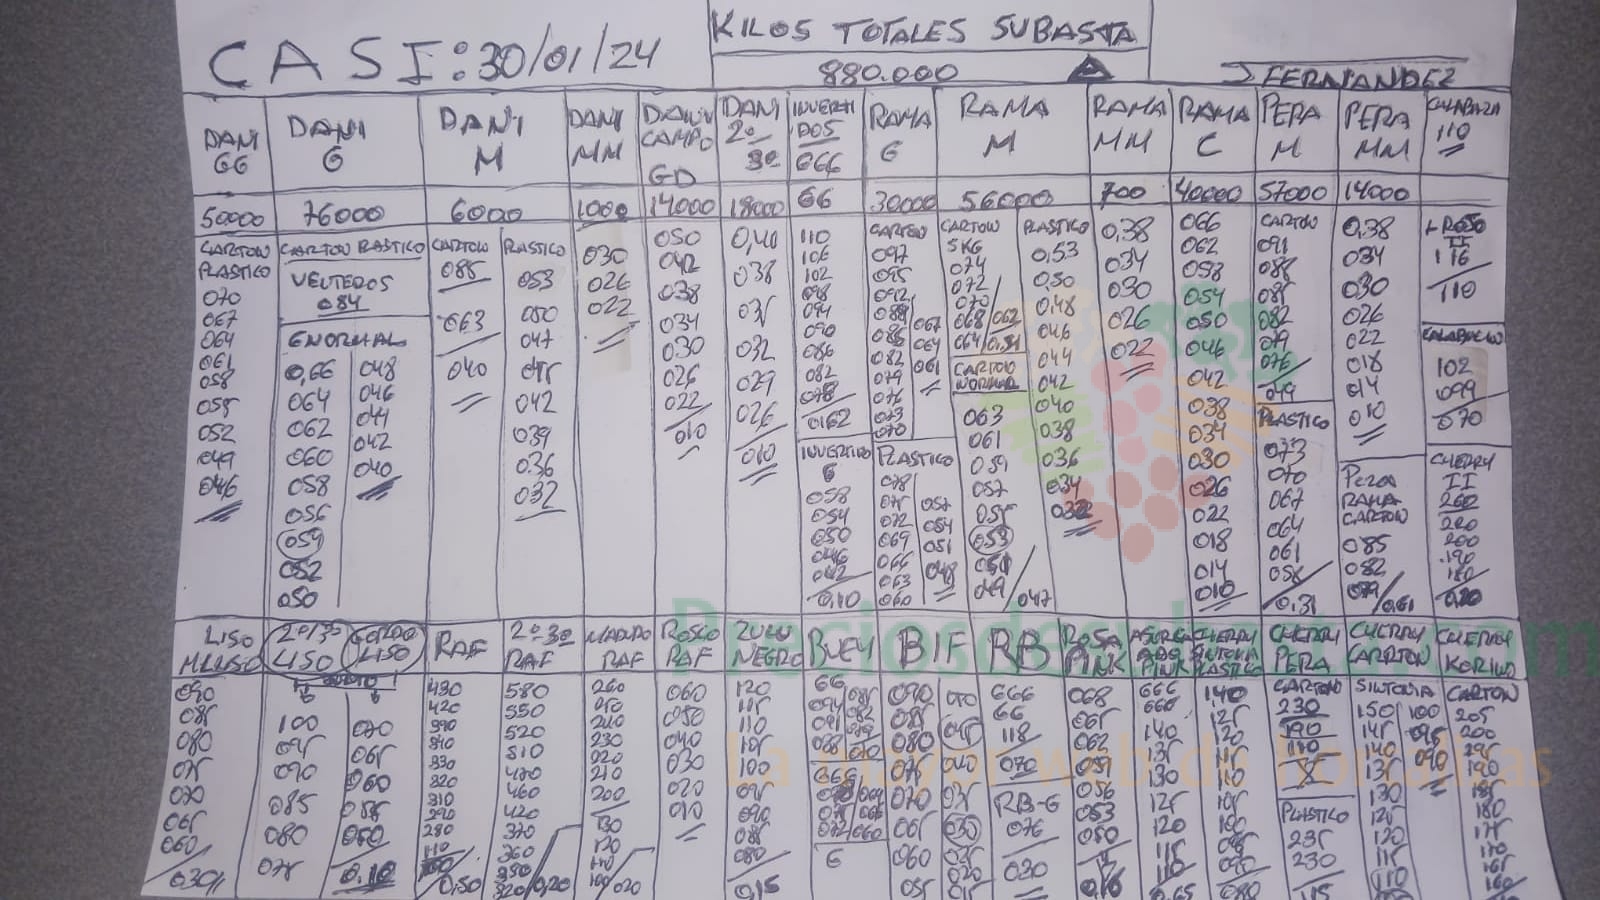 CASI: 30/01/24
KILOS TOTALES SUBASTA
880.000
J FERNANDEZ
DANI GG
50000
CARTON
PLASTICO
070
067
064
061
058
055
052
049
046
DANI G
76000
CARTON PLASTICO
084
GNORMAL
0,66
064
062
060
058
056
054
052
050
048
046
044
042
040
DANI M
6000
CARTON
085
063
040
PLASTICO
053
050
047
045
042
039
036
032
DANI MM
1000
030
026
022
CAMPO
GD
14000
050
042
038
034
030
026
022
010
DANI
2ª
3ª
18000
0,40
038
035
032
029
026
010
INVERTI
DOS
GGG
GG
110
106
102
098
094
090
086
082
078
0,62
INVERTIDO
G
058
054
050
046
042
0,10
RAMA
G
30000
CARTON
097
095
092
088
086
082
079
076
073
070
067
064
061
PLASTICO
078
075
072
069
066
063
060
057
054
051
048
RAMA
M
56000
CARTON
5KG
074
072
070
068/062
064/0,51
CARTON
NORMAL
063
061
059
057
055
053
051
049/047
PLASTICO
0,53
0,50
0,48
046
044
042
040
038
036
034
032
RAMA
MM
700
0,38
034
030
026
022
RAMA
C
40000
066
062
058
054
050
046
042
038
034
030
026
022
018
014
010
PERA
M
57000
CARTON
091
088
085
082
079
076
044
PLASTICO
073
070
067
064
061
058
0,31
PERA
MM
14000
0,38
034
030
026
022
018
014
010
PERA
RAMA
CARTON
085
082
079/0,61
CALABAZA
110
II
116
110
102
099
070
CHERRY
II
260
220
200
190
180
LISO
090
085
080
075
070
065
060
030
2ª/3ª
LISO
GORDO
LISO
100
095
090
085
080
075
070
065
060
055
050
0.10
RAF
430
420
390
340
330
320
310
290
280
110
100/0,50
2ª-3ª
RAF
580
550
520
510
470
460
420
370
360
350
320/0,20
MADURO
RAF
260
250
240
230
220
210
200
130
120
110
100/020
ROSCO
RAF
060
050
040
030
020
010
ZULU
NEGRO
120
115
110
105
100
095
090
085
080
0,15
BUEY
GG
094
091
088
085
082
079
070
GGG
G
BIF
090
085
080
075
070
065
060
055
050
045
040
035
030
025
020
015
RB
GGG
GG
118
070
RB-G
076
030
ROSA
PINK
068
065
062
059
056
053
050
PINK
GGG
140
135
130
125
120
115
110
0,65
CHERRY
SINTONIA
PLASTICO
140
125
120
115
110
105
100
095
090
080
CHERRY
PERA
CARTON
230
190
PLASTICO
235
230
115
CHERRY
CARRTON
SINTONIA
150
145
140
135
130
125
120
115
110
100
095
090
CHERRY
CARTON
205
200
195
190
185
180
175
170
165
160